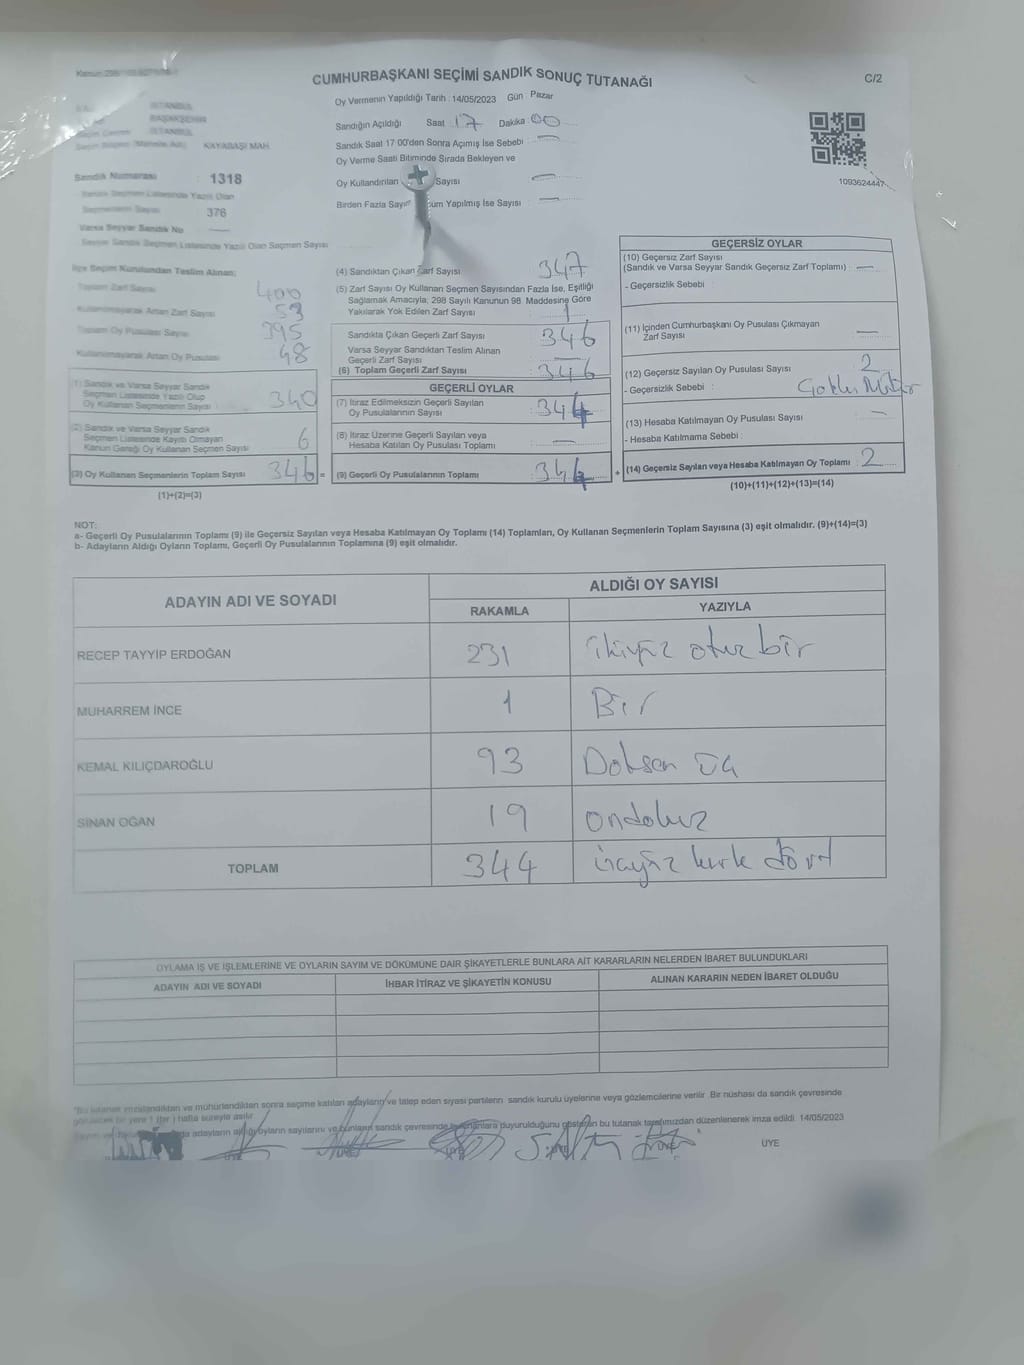 CUMHURBAŞKANI SEÇİMİ SANDIK SONUÇ TUTANAĞI
C/2
Oy Vermenin Yapıldığı Tarih : 14/05/2023 Gün : Pazar
İSTANBUL
BAŞAKŞEHİR
İSTANBUL
KAYABAŞI MAH.
Sandığın Açıldığı Saat 17 Dakika : 00
Sandık Saat 17 00'den Sonra Açımış İse Sebebi
Oy Verme Saati Bitiminde Sırada Bekleyen ve
Oy Kullandırılan Sayısı
Sandık Numarası : 1318
Sandık Seçmen Listesinde Yazılı Olan
Seçmenlerin Sayısı 376
Varsa Seyyar Sandık No
Seyyar Sandık Seçmen Listesinde Yazılı Olan Seçmen Sayısı
1093624447
İlçe Seçim Kurulundan Teslim Alınan;
Toplam Zarf Sayısı 400
Kullanılmayarak Artan Zarf Sayısı 53
Toplam Oy Pusulası Sayısı 395
Kullanılmayarak Artan Oy Pusulası 48
(1) Sandık ve Varsa Seyyar Sandık
Seçmen Listesinde Yazılı Olup
Oy Kullanan Seçmenlerin Sayısı 340
(2) Sandık ve Varsa Seyyar Sandık
Seçmen Listesinde Kayıtlı Olmayan
Kanun Gereği Oy Kullanan Seçmen Sayısı 6
(3) Oy Kullanan Seçmenlerin Toplam Sayısı 346 =
(1)+(2)=(3)
(4) Sandıktan Çıkan Zarf Sayısı 347
(5) Zarf Sayısı Oy Kullanan Seçmen Sayısından Fazla İse, Eşitliği
Sağlamak Amacıyla, 298 Sayılı Kanunun 98. Maddesine Göre
Yakılarak Yok Edilen Zarf Sayısı 1
Sandıkta Çıkan Geçerli Zarf Sayısı 346
Varsa Seyyar Sandıktan Teslim Alınan
Geçerli Zarf Sayısı
(6) Toplam Geçerli Zarf Sayısı : 346
GEÇERLİ OYLAR
(7) İtiraz Edilmeksizin Geçerli Sayılan
Oy Pusulalarının Sayısı : 344
(8) İtiraz Üzerine Geçerli Sayılan veya
Hesaba Katılan Oy Pusulası Toplamı :
(9) Geçerli Oy Pusulalarının Toplamı 344 +
GEÇERSİZ OYLAR
(10) Geçersiz Zarf Sayısı
(Sandık ve Varsa Seyyar Sandık Geçersiz Zarf Toplamı) :
- Geçersizlik Sebebi :
(11) İçinden Cumhurbaşkanı Oy Pusulası Çıkmayan
Zarf Sayısı
(12) Geçersiz Sayılan Oy Pusulası Sayısı : 2
- Geçersizlik Sebebi :
(13) Hesaba Katılmayan Oy Pusulası Sayısı
- Hesaba Katılmama Sebebi :
(14) Geçersiz Sayılan veya Hesaba Katılmayan Oy Toplamı 2
(10)+(11)+(12)+(13)=(14)
NOT:
a- Geçerli Oy Pusulalarının Toplamı (9) ile Geçersiz Sayılan veya Hesaba Katılmayan Oy Toplamı (14) Toplamları, Oy Kullanan Seçmenlerin Toplam Sayısına (3) eşit olmalıdır. (9)+(14)=(3)
b- Adayların Aldığı Oyların Toplamı, Geçerli Oy Pusulalarının Toplamına (9) eşit olmalıdır.
ADAYIN ADI VE SOYADI ALDIĞI OY SAYISI
RAKAMLA YAZIYLA
RECEP TAYYİP ERDOĞAN 231 ikiyüz otuz bir
MUHARREM İNCE 1 Bir
KEMAL KILIÇDAROĞLU 93 Doksan üç
SİNAN OĞAN 19 ondokuz
TOPLAM 344 üçyüz kırk dört
OYLAMA İŞ VE İŞLEMLERİNE VE OYLARIN SAYIM VE DÖKÜMÜNE DAİR ŞİKAYETLERLE BUNLARA AİT KARARLARIN NELERDEN İBARET BULUNDUKLARI
ADAYIN ADI VE SOYADI İHBAR İTİRAZ VE ŞİKAYETİN KONUSU ALINAN KARARIN NEDEN İBARET OLDUĞU
Bu tutanak imzalandıktan ve mühürlendikten sonra seçime katılan adayların ve talep eden siyasi partilerin sandık kurulu üyelerine veya gözlemcilerine verilir. Bir nüshası da sandık çevresinde
bir yere 1 (bir) hafta süreyle asılır
adayların aldığı oyların sayılarını ve bunların sandık çevresinde duyurulduğunu gösteren bu tutanak tarafımızdan düzenlenerek imza edildi. 14/05/2023
ÜYE